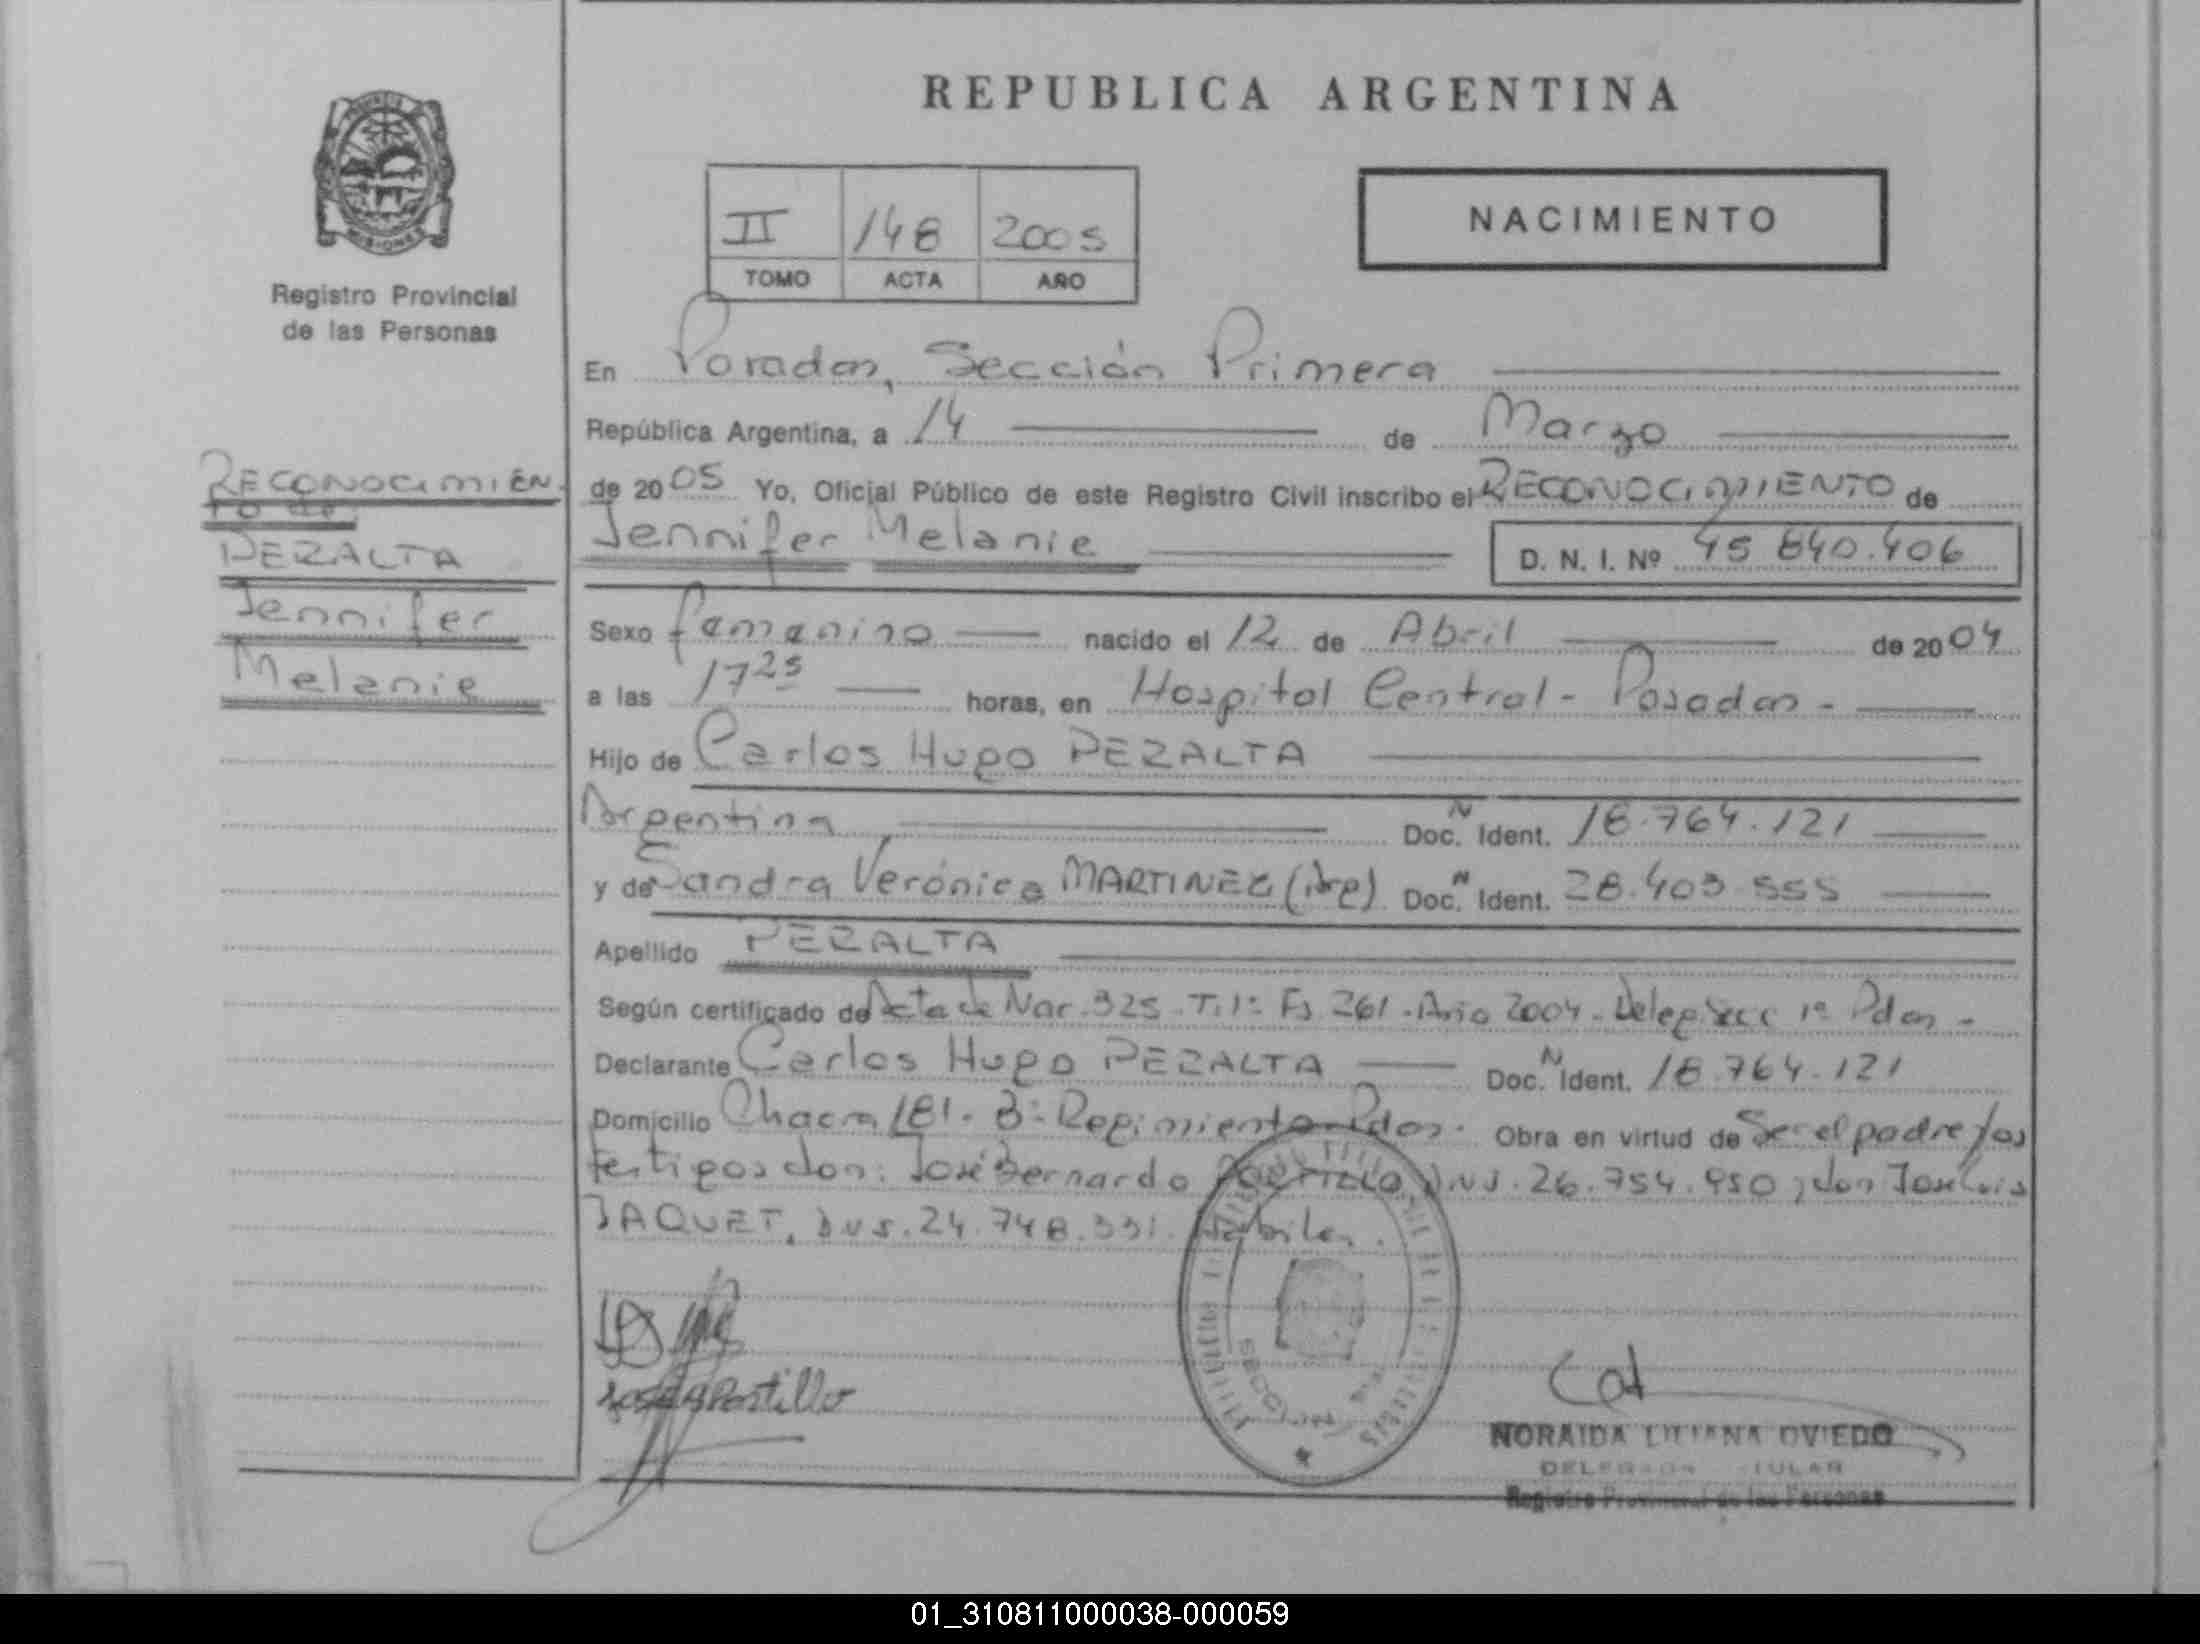 REPUBLICA ARGENTINA
MISIONES
Registro Provincial
de las Personas
II 148 2005
TOMO ACTA AÑO
NACIMIENTO
RECONOCIMIEN-
to de:
PERALTA
Jennifer
Melanie
En Posadas, Sección Primera
República Argentina, a 14 de Marzo
de 2005 Yo, Oficial Público de este Registro Civil inscribo el RECONOCIMIENTO de
Jennifer Melanie D. N. I. Nº 45 840.406
Sexo femenino nacido el 12 de Abril de 2004
a las 17 25 horas, en Hospital Central - Posadas -
Hijo de Carlos Hugo PERALTA
Argentina Doc. N Ident. 18.764.121
y de Sandra Verónica MARTINEZ (Arg) Doc. N Ident. 28.403.555
Apellido PERALTA
Según certificado de Acta de Nac. 325 - T. 1º Fs 261 - Año 2004 - 1ª Pdas -
Declarante Carlos Hugo PERALTA Doc. N Ident. 18.764.121
Domicilio Chacra 181 - Bº Regimiento - Pdas. Obra en virtud de Ser el padre los
testigos don: José Bernardo D.N.I. 26.754.950, don José Luis
JAQUET, D.N.I. 24.748.331. Hábiles.
SECCION
NORAIDA LILIANA OVIEDO
DELEGADA TITULAR
Registro Provincial de las Personas
01_310811000038-000059